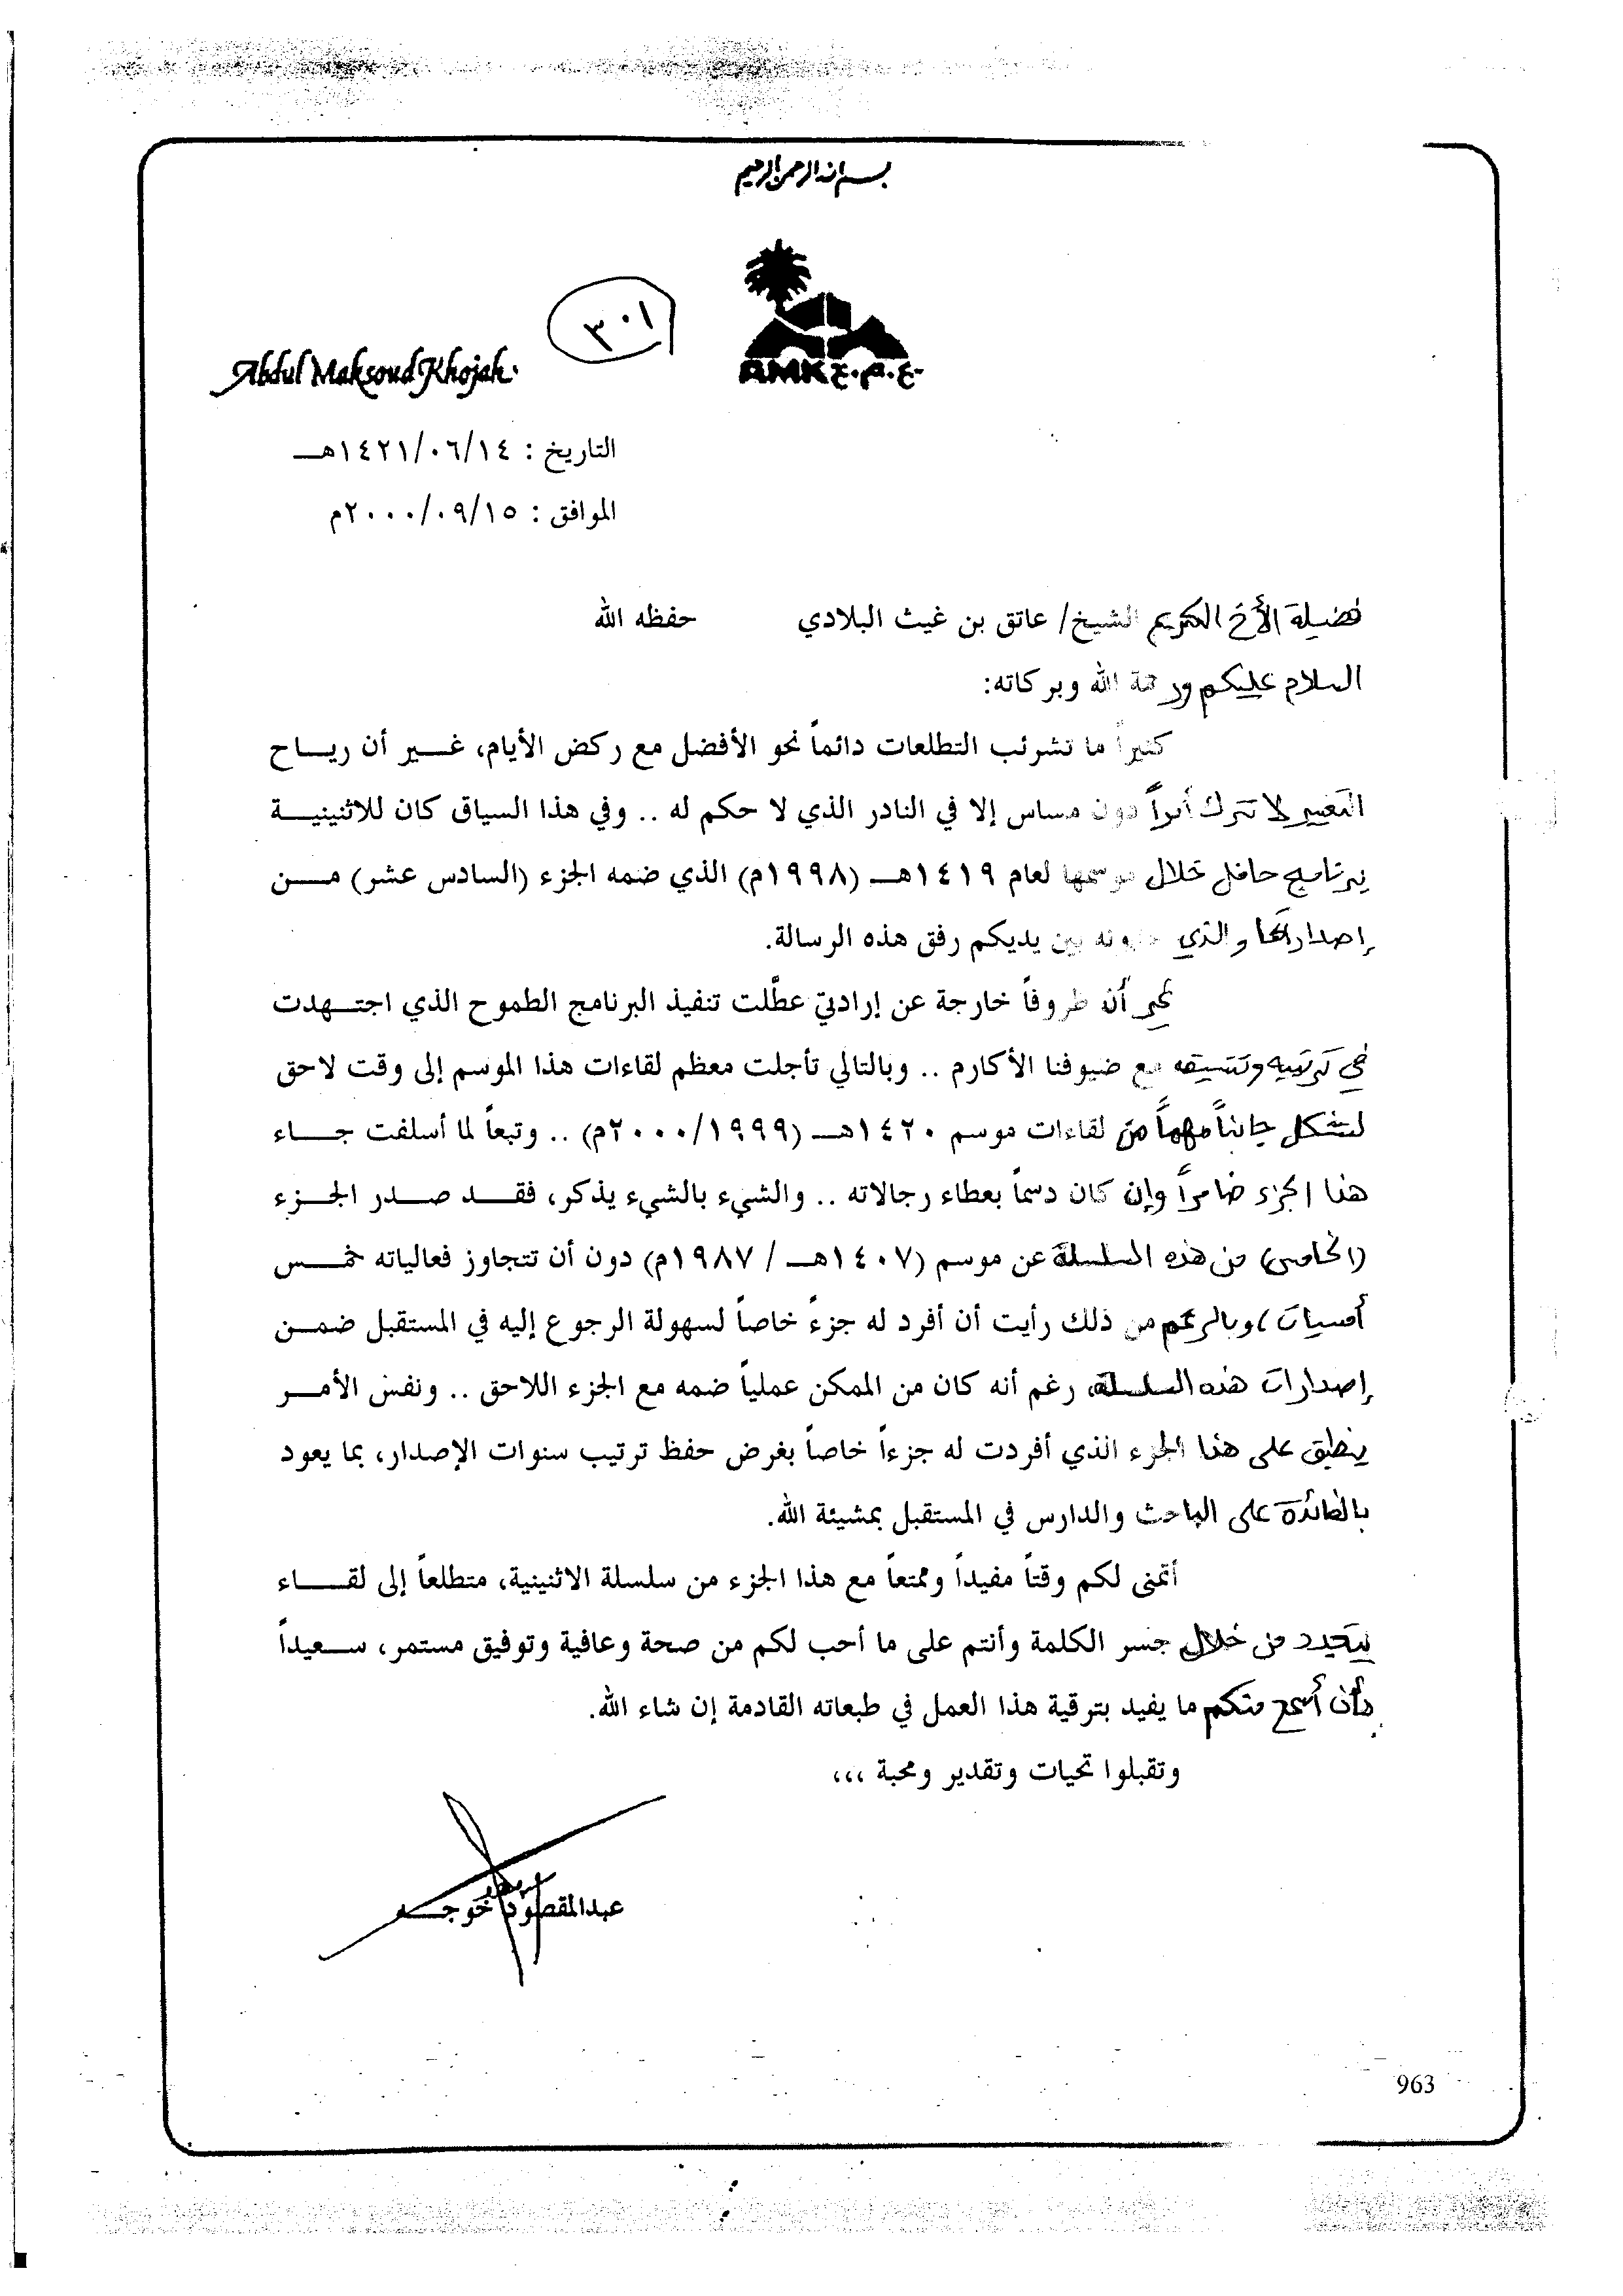 بسم الله الرحمن الرحيم
AMK ع.م.خ
٣٠١
Abdul Maksoud Khojah
التاريخ : ١٤٢١/٠٦/١٤هـ
الموافق : ٢٠٠٠/٠٩/١٥م
فضيلة الأخ الكريم الشيخ/ عاتق بن غيث البلادي حفظه الله
السلام عليكم ورحمة الله وبركاته:
كثيراً ما تشرئب التطلعات دائماً نحو الأفضل مع ركض الأيام، غير أن رياح
التغيير لا تترك أمراً دون مساس إلا في النادر الذي لا حكم له .. وفي هذا السياق كان للاثنينية
برنامج حافل خلال موسمها لعام ١٤١٩هـ (١٩٩٨م) الذي ضمه الجزء (السادس عشر) من
إصداراتها والذي بين يديكم رفق هذه الرسالة.
غير أن ظروفاً خارجة عن إرادتي عطّلت تنفيذ البرنامج الطموح الذي اجتهدت
في ترتيبه وتنسيقه مع ضيوفنا الأكارم .. وبالتالي تأجلت معظم لقاءات هذا الموسم إلى وقت لاحق
لتشكل جانباً مهماً من لقاءات موسم ١٤٢٠هـ (٢٠٠٠/١٩٩٩م) .. وتبعاً لما أسلفت جاء
هذا الجزء ضامراً وإن كان دسماً بعطاء رجالاته .. والشيء بالشيء يذكر، فقد صدر الجزء
(الخامس) من هذه السلسلة عن موسم (١٤٠٧هـ / ١٩٨٧م) دون أن تتجاوز فعالياته خمس
أمسيات، وبالرغم من ذلك رأيت أن أفرد له جزءً خاصاً لسهولة الرجوع إليه في المستقبل ضمن
إصدارات هذه السلسلة، رغم أنه كان من الممكن عملياً ضمه مع الجزء اللاحق .. ونفس الأمر
ينطبق على هذا الجزء الذي أفردت له جزءاً خاصاً بغرض حفظ ترتيب سنوات الإصدار، بما يعود
بالفائدة على الباحث والدارس في المستقبل بمشيئة الله.
أتمنى لكم وقتاً مفيداً وممتعاً مع هذا الجزء من سلسلة الاثنينية، متطلعاً إلى لقاء
يتجدد من خلال جسر الكلمة وأنتم على ما أحب لكم من صحة وعافية وتوفيق مستمر، سعيداً
بأن أسمع منكم ما يفيد بترقية هذا العمل في طبعاته القادمة إن شاء الله.
وتقبلوا تحيات وتقدير ومحبة ،،،
عبدالمقصود خوجه
963